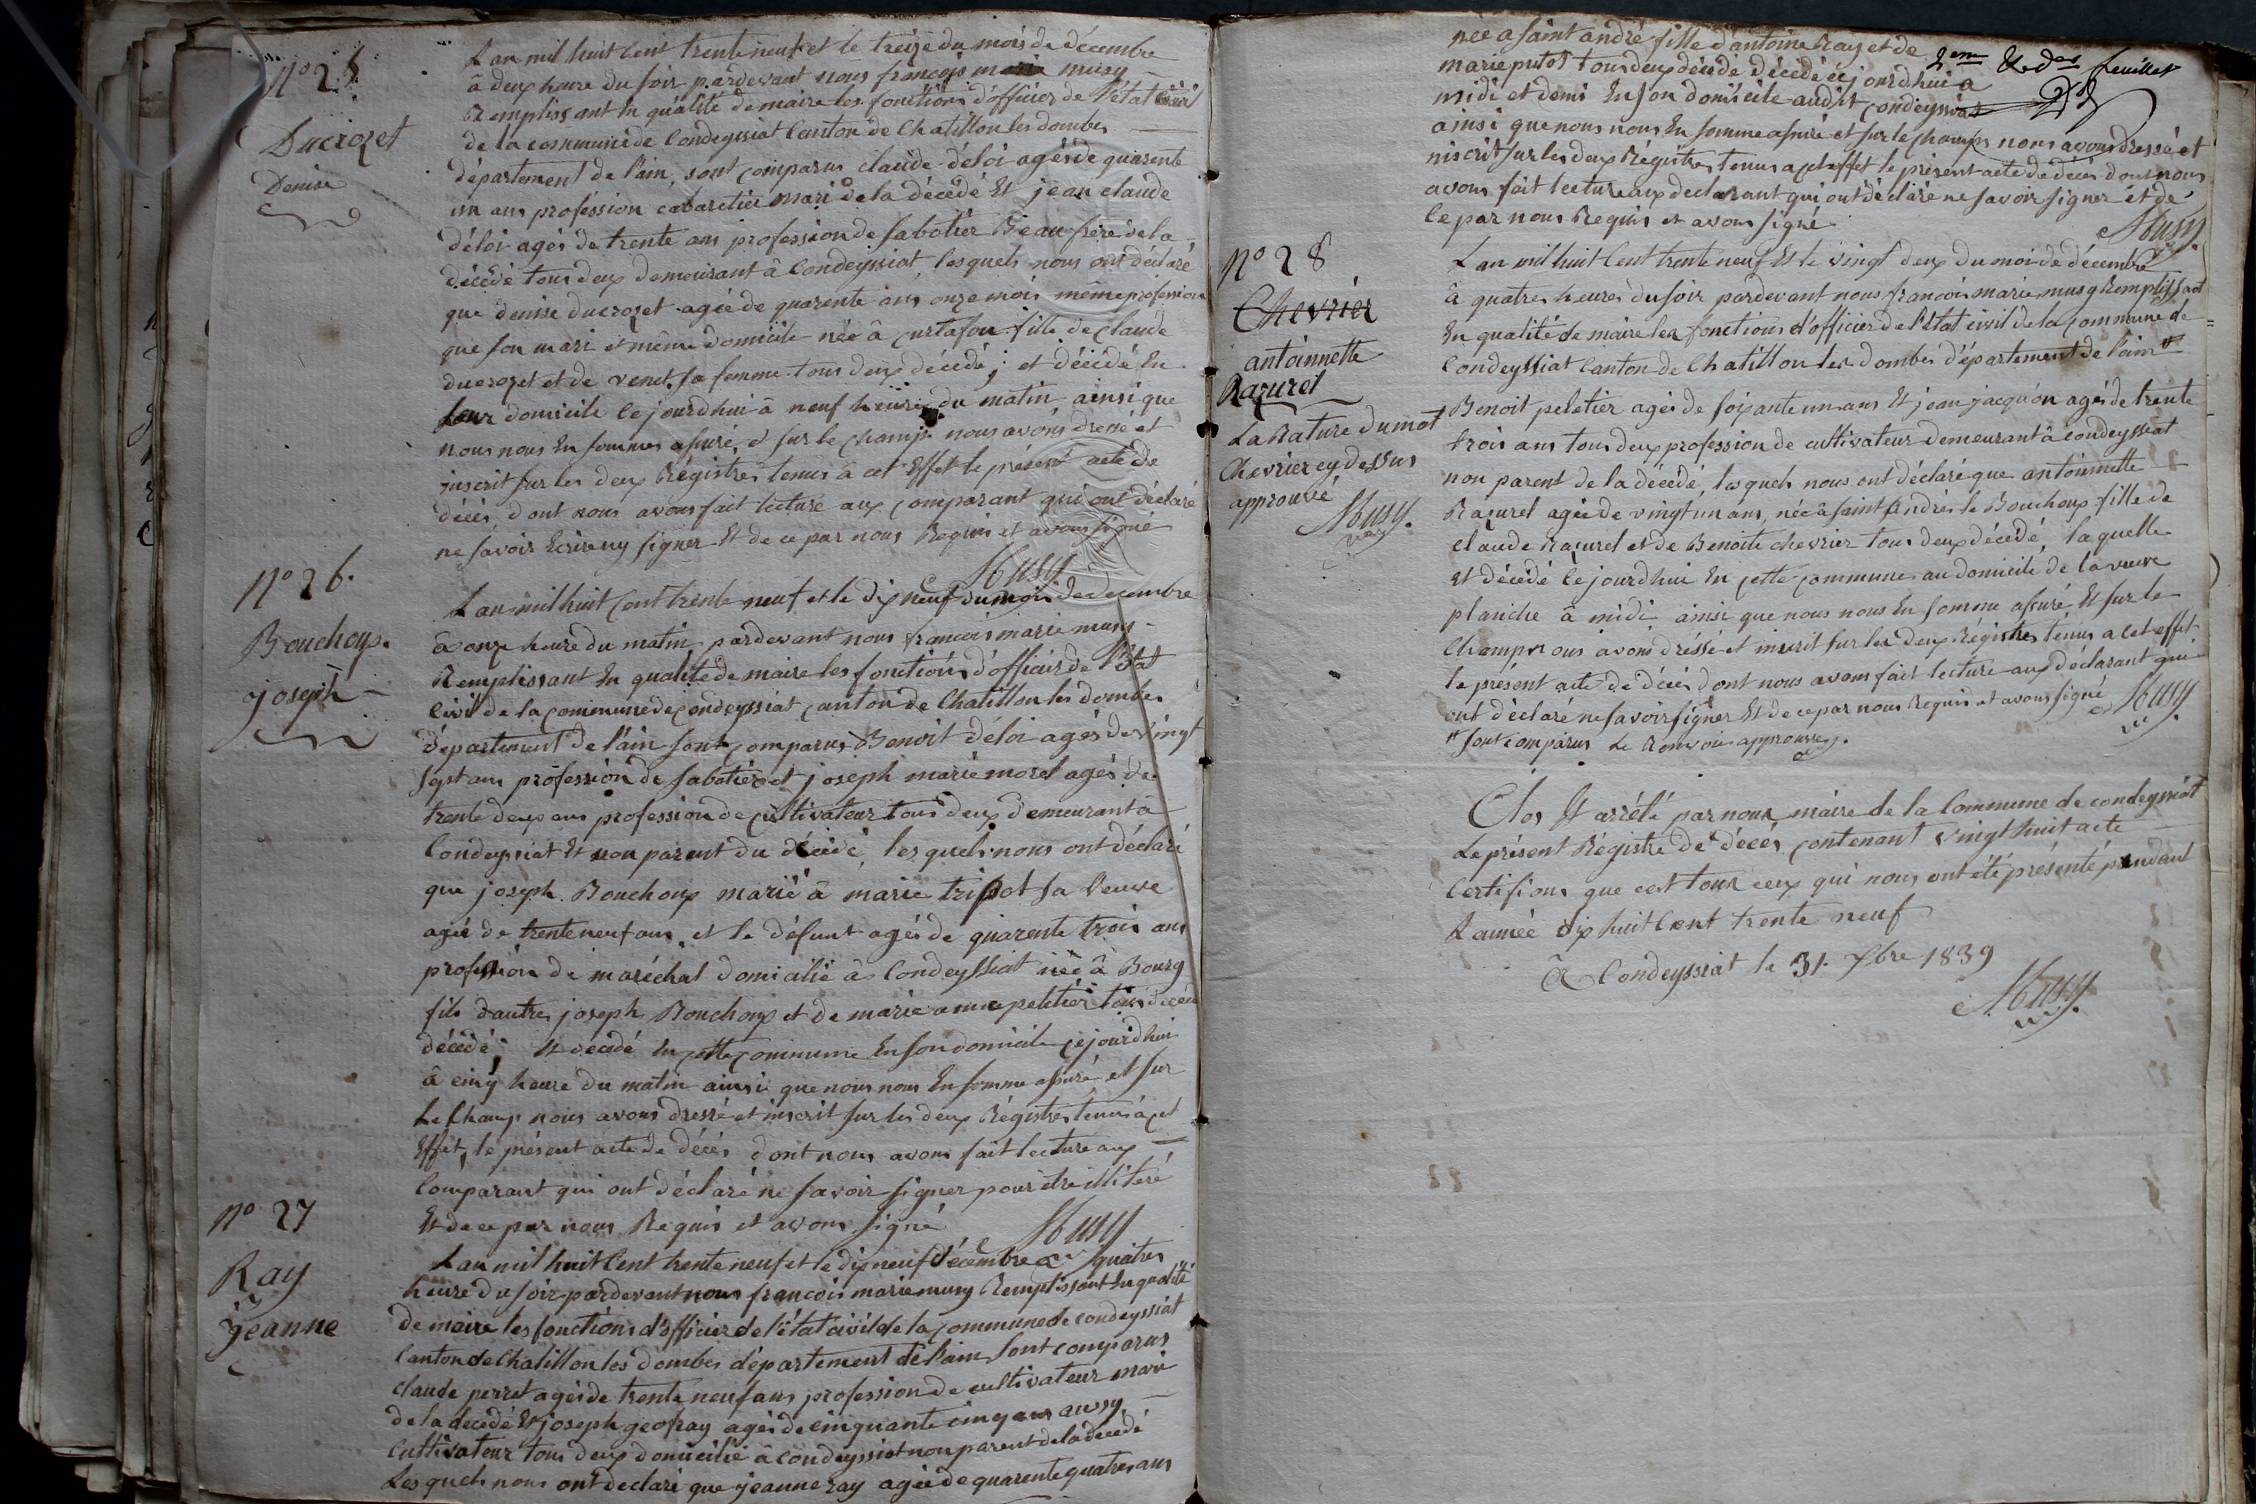 N° 25
Ducrozet
Denise
L'an mil huit cent trente neuf et le treize du mois de décembre
à deux heure du soir pardevant nous françois marie musy
Remplissant En qualité de maire les fonctions d'officier de l'état civil
de la commune de Condeyssiat Canton de Chatillon les dombes
département de l'ain, sont comparus claude déloi agés de quarente
un ans profession cabaretier mari de la décédé Et jean claude
déloi agés de trente ans profession de sabotier Beaufrère de la
décédé tous deux demeurant à Condeyssiat, lesquels nous ont déclaré
que denise ducrozet agée de quarente ans onze mois même profession
que son mari et même domicile née à curtafon fille de Claude
ducrozet et de venet sa femme tous deux décédé; et décédé En
leur domicile cejourdhui à neuf heure du matin ainsi que
nous nous En sommes assuré, et sur le champ nous avons dressé et
inscrit sur les deux Régistres tenus à cet Effet le présent acte de
décès, dont nous avons fait lecture aux comparant qui ont déclaré
ne savoir Ecrire ny signer Et de ce par nous Requis et avons signé
Musy
N° 26.
Bouchoux.
joseph
L'an mil huit cent trente neuf et le dix neuf du mois de decembre
à onze heure du matin pardevant nous francois marie musy
Remplissant En qualité de maire les fonctions d'officier de l'Etat
Civil de la commune de condeyssiat canton de Chatillon les dombes
département de l'ain sont comparus Benoit déloi agés de vingt
sept ans profession de sabotier et joseph marie morel agés de
trente deux ans profession de cultivateur tous deux demeurant à
Condeyssiat Et non parent du décédé, lesquels nous ont déclaré
que joseph Bouchoux marié à marie tripot sa veuve
agée de trente neuf ans, et le défunt agés de quarente trois ans
profession de maréchal domicilié à Condeyssiat née à Bourg
fils d'autre joseph Bouchoux et de marie anne peletier tous deux
décédé; Et décédé En cette commune En son domicile cejourdhui
à cinq heure du matin ainsi que nous nous En somme assuré et sur
Le Champ nous avons dressé et inscrit sur les deux Régistres tenus à cet
Effet, le présent acte de décès dont nous avons fait lecture aux
Comparant qui ont déclaré ne savoir signer pour etre illitéré
Et de ce par nous Requis et avons signé
Musy
N° 27
Ray
jeanne
L'an mil huit Cent trente neuf et le dix neuf décembre à quatres
heure du soir pardevant nous françois marie musy Remplissant En qualité
de maire les fonctions d'officier de l'état civil de la commune de condeyssiat
Canton de Chatillon les dombes département de l'ain sont comparus
Claude perret agés de trente neuf ans profession de cultivateur mari
de la décédé Et joseph geofray agés de cinquante cinq ans aussy
Cultivateur tous deux domicilié à condeyssiat non parent de la décédé
Lesquels nous ont déclaré que jeanne ray agée de quarente quatres ans
2eme & der feuillet
née à saint andré fille d'antoine Ray et de
marie putot tous deux décédé décédé cejourdhui à
midi et demi En son domicile audit condeyssiat
ainsi que nous nous En somme assuré et sur le champs nous avons dressé et
inscrit sur les deux Régistres tenus à cet effet le présent acte de décès dont nous
avons fait lecture aux declarant qui ont déclaré ne savoir signer et de
ce par nous Requis et avons signé
Musy
N° 28
Chevrier
antoinnette
Razurel
La Rature du mot
Chevrier cy dessus
approuvé
Musy.
L'an mil huit Cent trente neuf Et le vingt deux du moi de décembre
à quatres heures du soir pardevant nous francois marie musy Remplissant
En qualité de maire les fonctions d'officier de l'Etat civil de la commune de
Condeyssiat Canton de Chatillon les dombes département de l'ain
Benoit peletier agés de soixante un ans Et jean jacquon agés de trente
trois ans tous deux profession de cultivateur demeurant à condeyssiat
non parent de la décédé, lesquels nous ont déclaré que antoinnette
Razurel agée de vingt un ans, née à saint Andrés le Bouchoux fille de
Claude razurel et de Benoite chevrier tous deux décédé, laquelle
Et décédé cejourdhui En cette commune au domicile de la veuve
planche à midi ainsi que nous nous En somme assuré, Et sur le
Champ nous avons dressé et inscrit sur les deux Régistres tenus à cet effet
le présent acte de décès dont nous avons fait lecture aux déclarant qui
ont déclaré ne savoir signer Et de ce par nous Requis et avons signé
Musy
sont comparus Le Renvoi approuvé.
Clos Et arrêté par nous maire de la Commune de condeyssiat
Le présent Régistre de décès contenant vingt huit acte
Certifions que cest tous ceux qui nous ont été présenté pendant
L'année dix huit Cent trente neuf
à Condeyssiat le 31 Xbre 1839
Musy